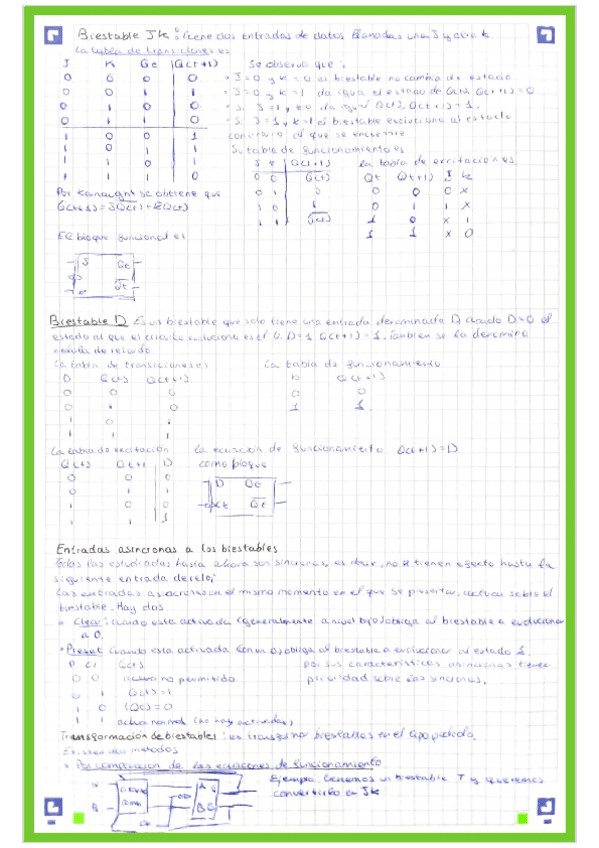 Biestable Jk: tiene dos entradas de datos llamadas una J y otra k.
La tabla de transiciones es
J K Q(t) Q(t+1)
0 0 0 0
0 0 1 1
0 1 0 0
0 1 1 0
1 0 0 1
1 0 1 1
1 1 0 1
1 1 1 0
Se observa que:
• J=0 y k=0 el biestable no cambia de estado
• J=0 y k=1 da igual el estado de Q(t), Q(t+1)=0
• Si J=1 y k=0 da igual Q(t), Q(t+1)=1.
• Si J=1 y k=1 el biestable evoluciona al estado
contrario al que se encuentre
Su tabla de funcionamiento es
J k Q(t+1)
0 0 Q(t)
0 1 0
1 0 1
1 1 Q(t)
La tabla de excitación es
Qt Q(t+1) J k
0 0 0 X
0 1 1 X
1 0 X 1
1 1 X 0
Por Karnaught se obtiene que
El bloque funcional es
J Qt
Biestable D. Es un biestable que solo tiene una entrada denominada D, cuando D=0 el
estado al que el circuito evoluciona es el 0. D=1 Q(t+1)=1. Tambien se la denomina
La tabla de transiciones es
D Q(t) Q(t+1)
0 0 0
0 1 0
1 0 1
1 1 1
La tabla de funcionamiento
D Q(t+1)
0 0
1 1
La tabla de excitación
Q(t) Q(t+1) D
0 0 0
0 1 1
1 0 0
1 1 1
La ecuación de funcionamiento Q(t+1)=D
como bloque
D Qt
Qt
Entradas asincronas a los biestables
Todas las estudiadas hasta ahora son sincronas, es decir, no tienen efecto hasta la
siguiente entrada de reloj
Las entradas asincronas en el mismo momento en el que se presentan, actuan sobre el
biestable. Hay dos
• Clear: cuando esta activada (generalmente a nivel bajo) obliga al biestable a evolucionar
a 0.
• Preset: Cuando esta activada obliga al biestable a evolucionar al estado 1.
P Cl Q(t)
0 0 no permitido
0 1 Q(t)=1
1 0 Q(t)=0
1 1 actua normal (no hay activadas)
por sus caracteristicas asincronas tienen
prioridad sobre las sincronas.
Transformación de biestables: es transformar biestables en el tipo pedido.
Existen dos metodos
• Por comparacion de las ecuaciones de funcionamiento
Ejemplo. Tenemos un biestable T y queremos
convertirlo en Jk